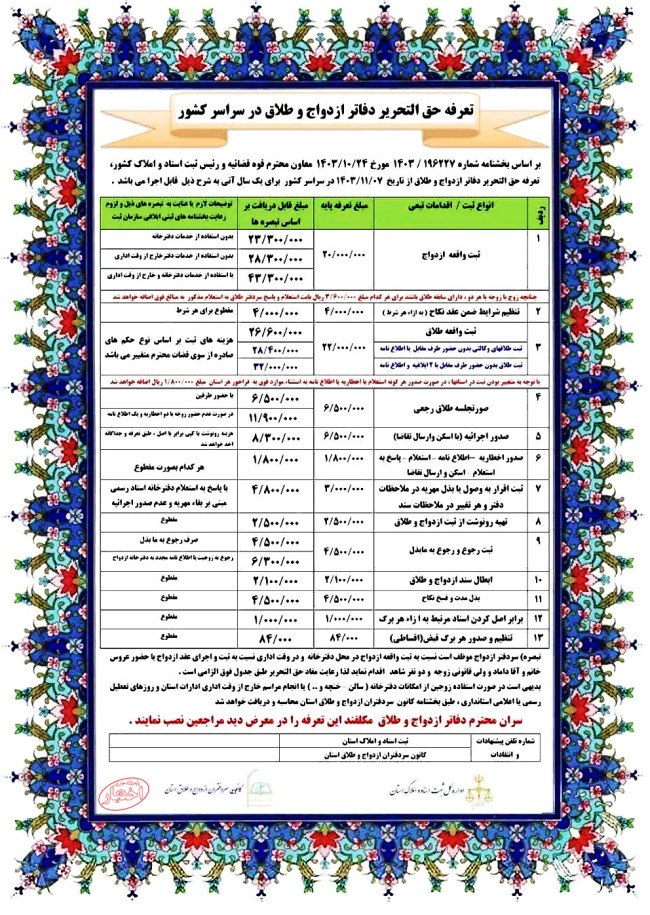 تعرفه حق التحریر دفاتر ازدواج و طلاق در سراسر کشور
بر اساس بخشنامه شماره ۱۹۶۲۲۷ / ۱۴۰۳ مورخ ۱۴۰۳/۱۰/۲۴ معاون محترم قوه قضائیه و رئیس ثبت اسناد و املاک کشور،
تعرفه حق التحریر دفاتر ازدواج و طلاق از تاریخ ۱۴۰۳/۱۱/۰۷ در سراسر کشور برای یک سال آتی به شرح ذیل قابل اجرا می باشد .
ردیف
انواع ثبت / اقدامات تبعی
مبلغ تعرفه پایه
مبلغ قابل دریافت بر اساس تبصره ها
توضیحات لازم با عنایت به تبصره های ذیل و لزوم رعایت بخشنامه های ثبتی ابلاغی سازمان ثبت
۱ ثبت واقعه ازدواج ۲۰/۰۰۰/۰۰۰ ۲۳/۳۰۰/۰۰۰ بدون استفاده از خدمات دفترخانه
۲۸/۳۰۰/۰۰۰ بدون استفاده از خدمات دفترخانه خارج از وقت اداری
۴۳/۳۰۰/۰۰۰ با استفاده از خدمات دفترخانه و خارج از وقت اداری
چنانچه زوج یا زوجه یا هر دو، دارای سابقه طلاق باشند برای هر کدام مبلغ ۳/۶۰۰/۰۰۰ ریال بابت استعلام و پاسخ سردفتر طلاق به استعلام مذکور به مبالغ فوق اضافه خواهد شد
۲ تنظیم شرایط ضمن عقد نکاح ( به ازاء هر شرط ) ۴/۰۰۰/۰۰۰ ۴/۰۰۰/۰۰۰ مقطوع برای هر شرط
۳ ثبت واقعه طلاق ۲۲/۰۰۰/۰۰۰ ۲۶/۶۰۰/۰۰۰ هزینه های ثبت بر اساس نوع حکم های صادره از سوی قضات محترم متغییر می باشد
ثبت طلاقهای وکالتی بدون حضور طرف مقابل با اطلاع نامه ۲۸/۴۰۰/۰۰۰
ثبت طلاق بدون حضور طرف مقابل با ۲ ابلاغیه و اطلاع نامه ۳۲/۰۰۰/۰۰۰
با توجه به متغییر بودن ثبت در استانها ، در صورت صدور هر گونه استعلام یا اخطاریه یا اطلاع نامه به استثناء موارد فوق به فراخور هر استان مبلغ ۱/۸۰۰/۰۰۰ ریال اضافه خواهد شد
۴ صورتجلسه طلاق رجعی ۶/۵۰۰/۰۰۰ ۶/۵۰۰/۰۰۰ با حضور طرفین
۱۱/۹۰۰/۰۰۰ در صورت عدم حضور زوجه با دو اخطاریه و یک اطلاع نامه
۵ صدور اجرائیه (با اسکن وارسال تقاضا) ۶/۵۰۰/۰۰۰ ۸/۳۰۰/۰۰۰ هزینه رونوشت یا کپی برابر با اصل ، طبق تعرفه و جداگانه اخذ خواهد شد
۶ صدور اخطاریه –اطلاع نامه –استعلام – پاسخ به استعلام – اسکن و ارسال تقاضا ۱/۸۰۰/۰۰۰ ۱/۸۰۰/۰۰۰ هر کدام بصورت مقطوع
۷ ثبت اقرار به وصول یا بذل مهریه در ملاحظات دفتر و هر تغییر در ملاحظات سند ۳/۰۰۰/۰۰۰ ۴/۸۰۰/۰۰۰ با پاسخ به استعلام دفترخانه اسناد رسمی مبنی بر بقاء مهریه و عدم صدور اجرائیه
۸ تهیه رونوشت از ثبت ازدواج و طلاق ۲/۵۰۰/۰۰۰ ۲/۵۰۰/۰۰۰ مقطوع
۹ ثبت رجوع و رجوع به مابذل ۴/۵۰۰/۰۰۰ ۴/۵۰۰/۰۰۰ صرف رجوع به ما بذل
۶/۳۰۰/۰۰۰ رجوع به زوجیت با اطلاع نامه مجدد به دفترخانه ازدواج
۱۰ ابطال سند ازدواج و طلاق ۲/۱۰۰/۰۰۰ ۲/۱۰۰/۰۰۰ مقطوع
۱۱ بذل مدت و فسخ نکاح ۴/۵۰۰/۰۰۰ ۴/۵۰۰/۰۰۰ مقطوع
۱۲ برابر اصل کردن اسناد مرتبط به ازاء هر برگ ۱/۰۰۰/۰۰۰ ۱/۰۰۰/۰۰۰ مقطوع
۱۳ تنظیم و صدور هر برگ قبض(اقساطی) ۸۴/۰۰۰ ۸۴/۰۰۰ مقطوع
تبصره) سردفتر ازدواج موظف است نسبت به ثبت واقعه ازدواج در محل دفترخانه و در وقت اداری نسبت به ثبت و اجرای عقد ازدواج با حضور عروس
خانم و آقا داماد و ولی قانونی زوجه و دو نفر شاهد اقدام نماید لذا رعایت مفاد حق التحریر طبق جدول فوق الزامی است .
بدیهی است در صورت استفاده زوجین از امکانات دفترخانه ( سالن – خنچه و .. ) یا انجام مراسم خارج از وقت اداری ادارات استان و روزهای تعطیل
رسمی یا اعلامی استانداری ، طبق بخشنامه کانون سردفتران ازدواج و طلاق استان محاسبه و دریافت خواهد شد
سران محترم دفاتر ازدواج و طلاق مکلفند این تعرفه را در معرض دید مراجعین نصب نمایند .
شماره تلفن پیشنهادات و انتقادات
ثبت اسناد و املاک استان
کانون سردفتران ازدواج و طلاق استان
اداره کل ثبت اسناد و املاک استان
کانون سردفتران ازدواج و طلاق استان
اختبار